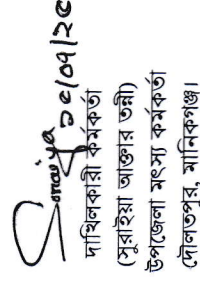 Soraiya
১৫/০৭/২৫
দাখিলকারী কর্মকর্তা
(সুরাইয়া আক্তার তন্নী)
উপজেলা মৎস্য কর্মকর্তা
দৌলতপুর, মানিকগঞ্জ।